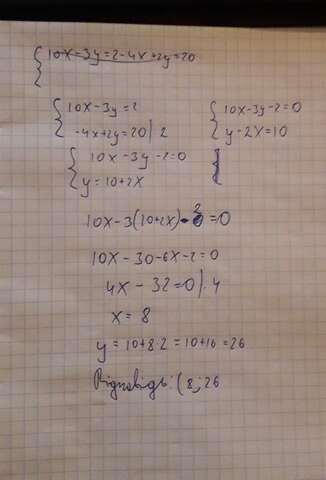 10x - 3y = 2 - 4x + 2y = 20
{ 10x - 3y = 2
-4x + 2y = 20 | 2
{ 10x - 3y - 2 = 0
y - 2x = 10
{ 10x - 3y - 2 = 0
y = 10 + 2x
10x - 3(10 + 2x) - 2 = 0
10x - 30 - 6x - 2 = 0
4x - 32 = 0 | . 4
x = 8
y = 10 + 8 · 2 = 10 + 16 = 26
Відповідь: (8; 26